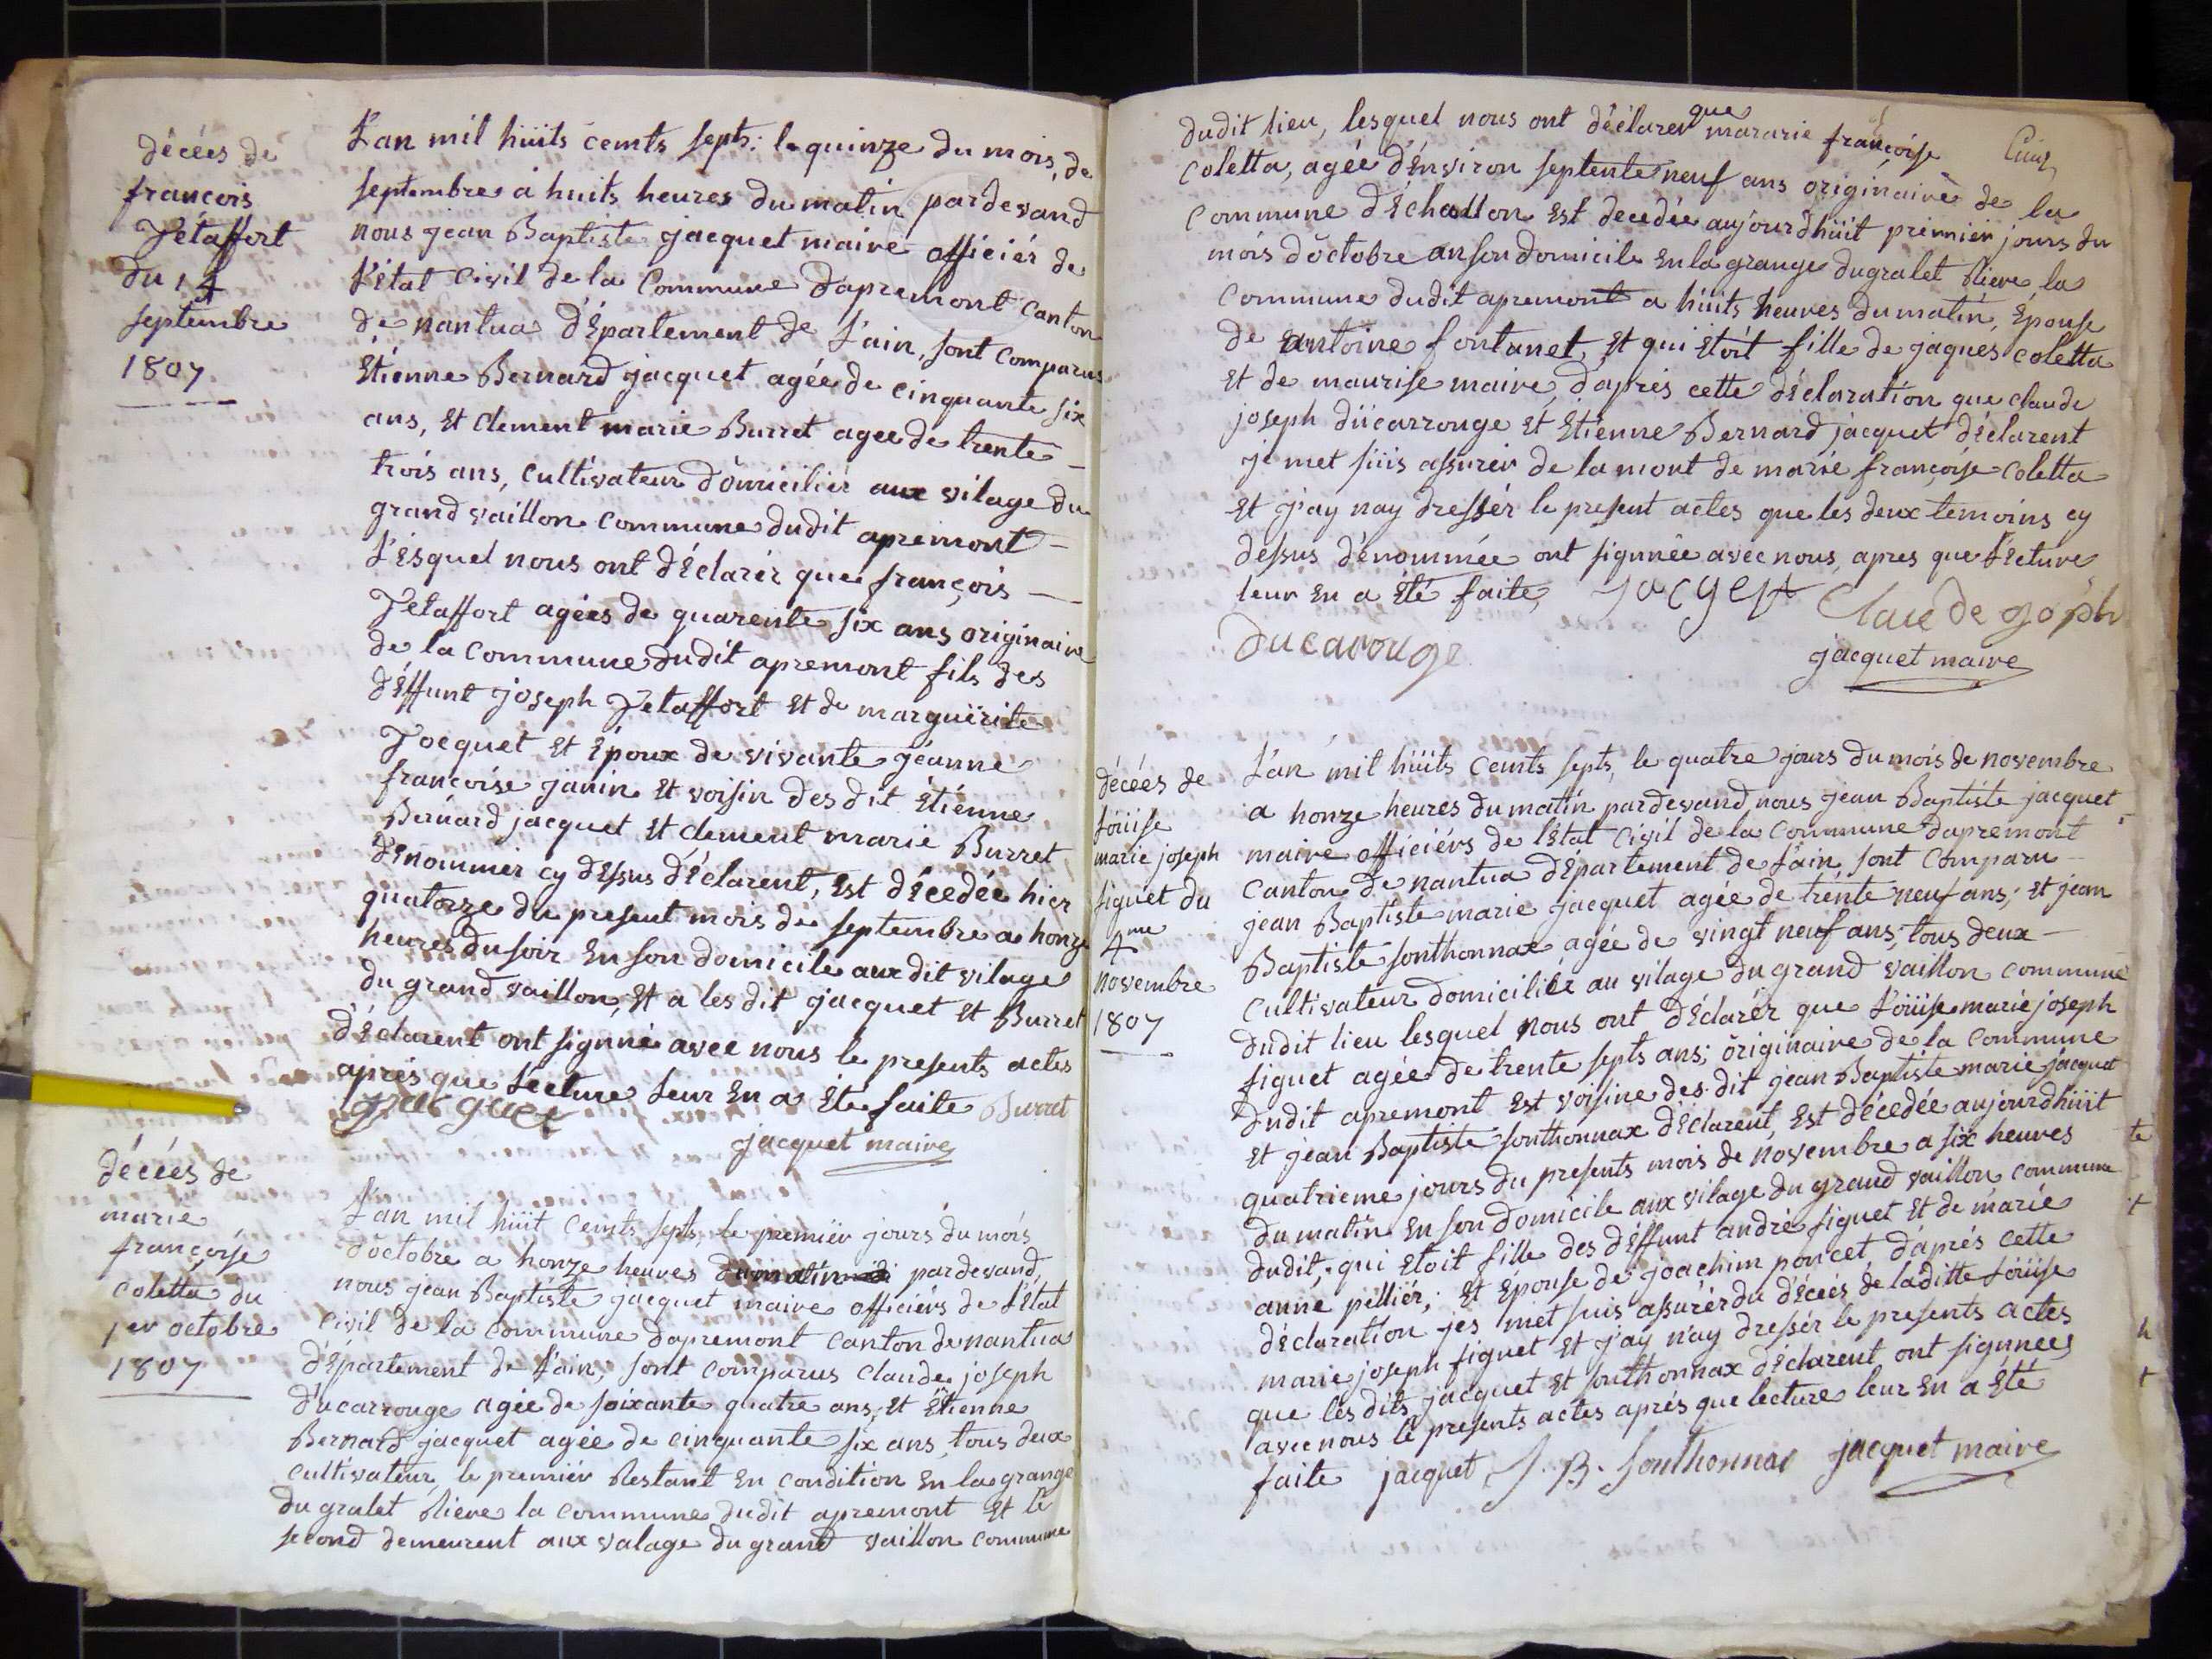 décées de
francois
Jétaffort
du 14
septembre
1807
L'an mil hüits cemts septs; le quinze du mois, de
septembre a huits heures du matin pardevand
nous jean Baptiste jacquet maire officiér de
L'état Civil de la Commune dapremont Canton
de nantua dÉpartement de L'ain, sont Comparus
Etienne Bernard jacquet agée de cinquante six
ans, Et Clement marie Burret agee de trente
trois ans, Cultivateur domiciliér aux vilage du
grand vaillon Commune dudit apremont
L'ésquel nous ont dÉclarér que françois
Jétaffort agées de quarente six ans originaire
de la Commune dudit apremont fils des
dÉffunt joseph Jétaffort Et de marguërite
Jocquet Et Époux de vivante jéanne
francoise janin Et voisin des dit Etienne
Bernard jacquet Et Clement marie Burret
dEnommér cy dEssus dÉclarent, Est dÉcedée hier
quatorze du present mois de septembre a honze
heures du soir En son domicile aux dit vilage
du grand vaillon, Et a les dit jacquet Et Burret
dÉclarent ont signné avec nous le presents actes
aprés que Lecture leur En a Été faite Burret
jacquet
jacquet maire
décées de
marie
françoise
coletta du
1er octobre
1807
L'an mil hüit Cemts septs, le premiér jours du mois
doctobre a honze heures du matin pardevand
nous jean Baptiste jacquet maire officiérs de L'État
Civil de la Commune dapremont Canton de nantua
dÉpartement de L'ain, sont Comparus Claude joseph
ducarrouge agée de soixante quatre ans, Et Étienne
Bernard jacquet agée de cinquante six ans, tous deux
Cultivateur, le premiér Restant En Condition En la grange
du gralet Riere la Commune dudit apremont Et le
second demeurent aux valage du grand vaillon Commune
dudit lieu, lesquel nous ont dÉclarer que mararie françoise
Coletta, agée dÉnviron septente neuf ans originaire de la
Commune dÉchallon Est decedée aujourdhüit premiér jours du
mois doctobre an son domicile En la grange du gralet Riere la
Commune dudit apremont a hüits heures du matin, Épouse
de antoine fontanet, Et qui Etoit fille de jaques Coletta
Et de maurise maire, d'aprés cette déclaration que claude
joseph dücarrouge Et Etienne Bernard jacquet dÉclarent
je met süis assurér de la mort de marie françoise coletta
Et j'ay nay dressér le present actes que les deux temoins cy
dessus dénommée ont signnée avec nous, apres que Lecture
leur En a Été faite, jacqet Claude joseph
ducarouge
jacquet maire
décées de
Loüise
marie joseph
figuet du
4me
novembre
1807
L'an mil hüits Cemts septs, le quatre jours du mois de novembre
a honze heures du matin pardevand nous jean Baptiste jacquet
maire officiérs de l'État Civil de la Commune dapremont
Canton de nantua dÉpartement de L'ain, sont Comparu
jean Baptiste marie jacquet agée de trente neuf ans, Et jean
Baptiste sonthonnax agée de vingt neuf ans, tous deux
Cultivateur domiciliér au vilage du grand vaillon Commune
dudit lieu lesquel nous ont dÉclarér que Loüise marie joseph
figuet agée de trente septs ans; originaire de la Commune
dudit apremont Est voisine des dit jean Baptiste marie jacquet
Et jean Baptiste sonthonnax dÉclarent, Est dÉcedée aujourdhüit
quatrieme jours du presents mois de novembre a six heures
du matin En son domicile aux vilage du grand vaillon commune
dudit, qui Etoit fille des dÉffunt andré figuet Et de marie
anne pélliér, Et Épouse de joachim poncet, d'aprés cette
dÉclaration jes mét suis assurér du dÉcées de laditte Loüise
marie joseph figuet Et j'ay n'ay dressér le presents actes
que lés dits jacquet Et sonthonnax dÉclarent ont signnées
avec nous le presents actes aprés que lecture leur En a Été
faite jacquet J. B. Sonthonnax jacquet maire